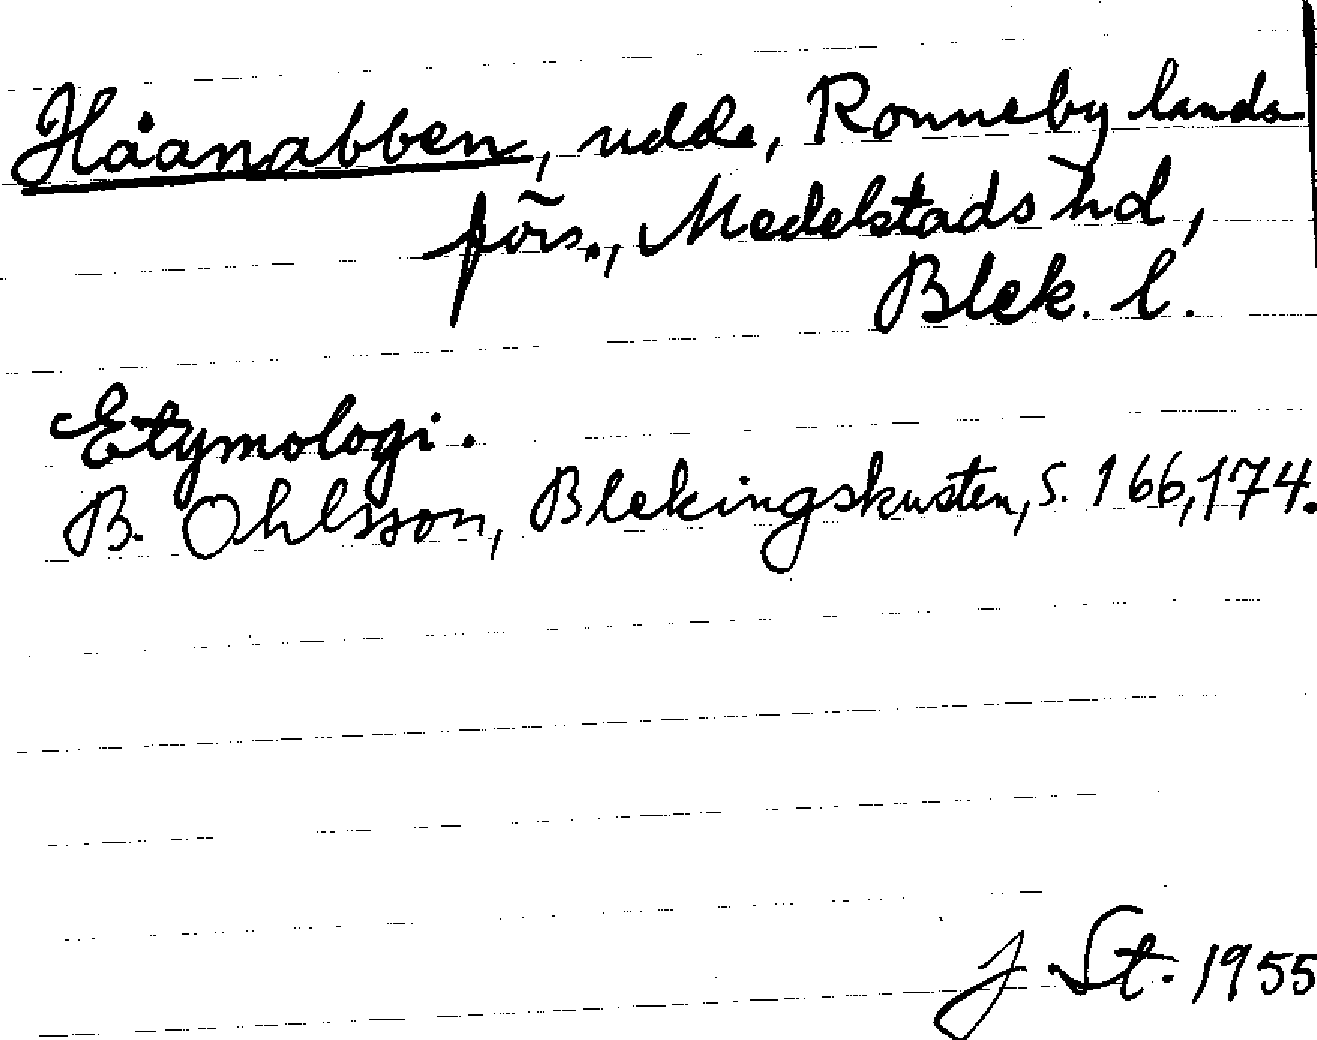 Håanabben, udde, Ronneby lands-
förs., Medelstads hd,
Blek. l.
Etymologi.
B. Ohlsson, Blekingskusten, s. 166, 174.
J St. 1955